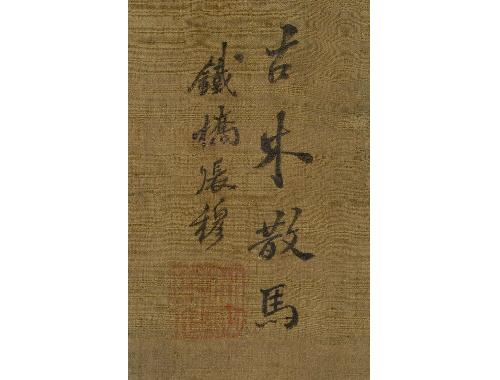 古木散馬
鐵橋張穆